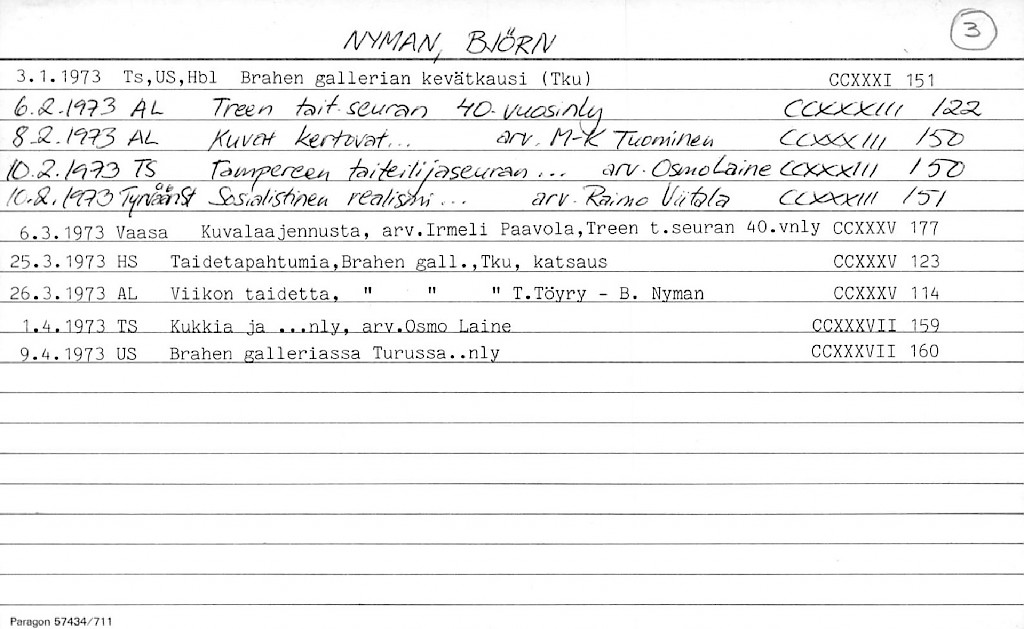 3
NYMAN, BJÖRN
3.1.1973 Ts,US,Hbl Brahen gallerian kevätkausi (Tku) CCXXXI 151
6.2.1973 AL Treen tait.seuran 40-vuosinly CCXXXIII 122
8.2.1973 AL Kuvat kertovat... arv. M-K Tuominen CCXXXIII 150
10.2.1973 TS Tampereen taiteilijaseuran ... arv. Osmo Laine CCXXXIII 150
10.2.1973 Sosialistinen realismi ... arv. Raimo Viitala CCXXXIII 151
6.3.1973 Vaasa Kuvalaajennusta, arv.Irmeli Paavola,Treen t.seuran 40.vnly CCXXXV 177
25.3.1973 HS Taidetapahtumia,Brahen gall.,Tku, katsaus CCXXXV 123
26.3.1973 AL Viikon taidetta, " " " T.Töyry - B. Nyman CCXXXV 114
1.4.1973 TS Kukkia ja ...nly, arv.Osmo Laine CCXXXVII 159
9.4.1973 US Brahen galleriassa Turussa..nly CCXXXVII 160
Paragon 57434/711